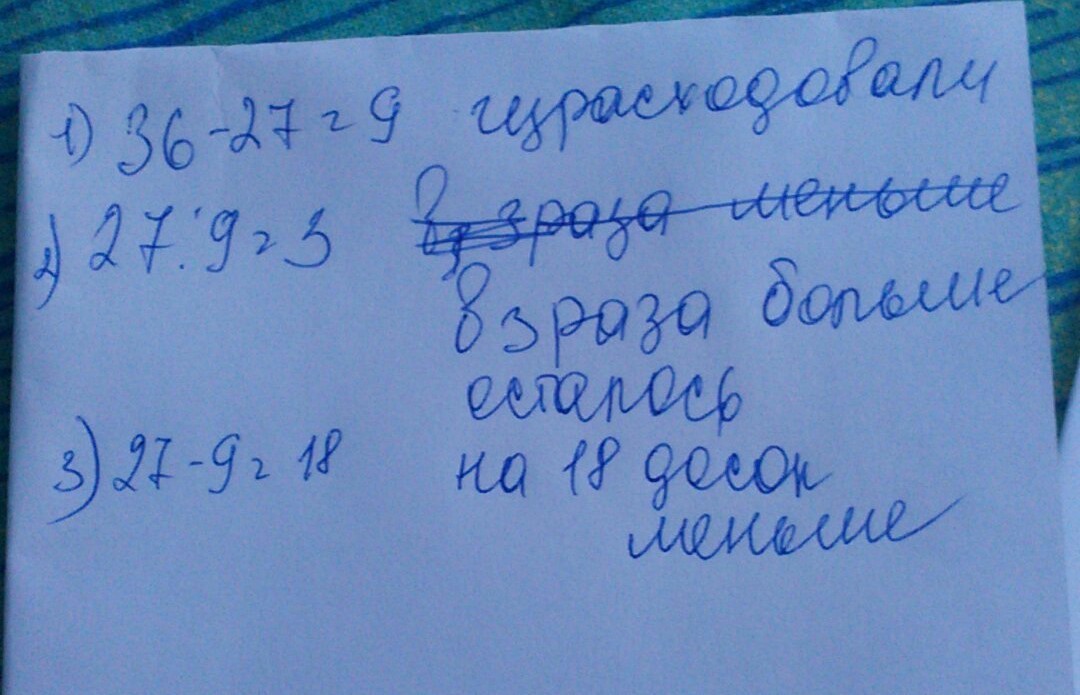 1) 36-27=9 израсходовали
2) 27:9=3 в 3 раза меньше
в 3 раза больше
осталось
3) 27-9=18 на 18 досок
меньше